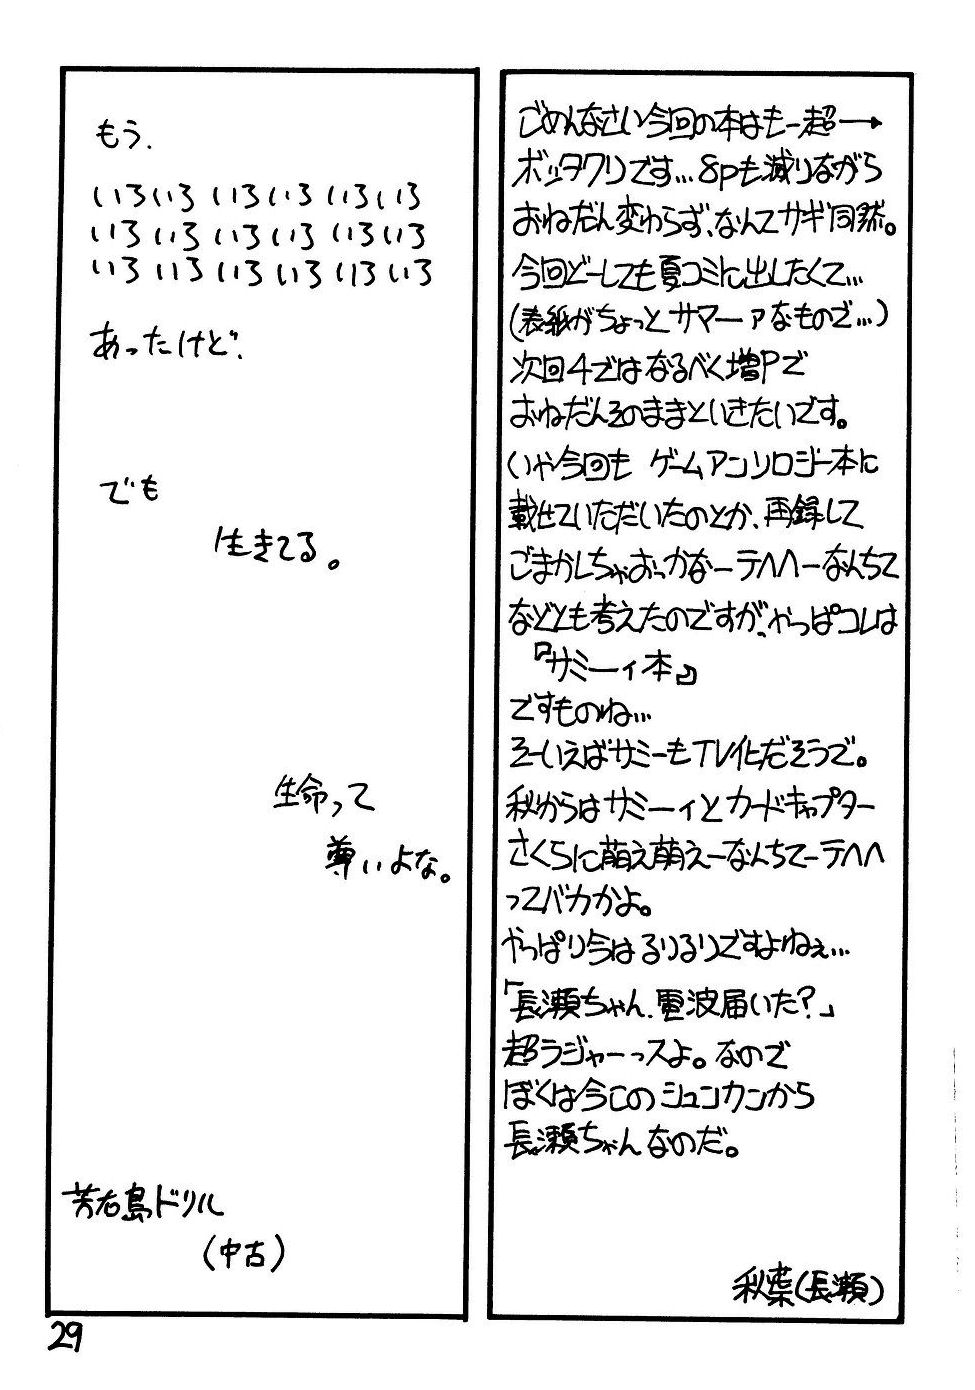 ごめんなさい今回の本はもー超一→
ボッタクリです…8pも減りながら
おねだん変わらず、なんてサギ同然。
今回どーしても夏コミに出したくて…
(表紙がちょっとサマーァなもので…)
次回4ではなるべく増Pで
おねだんそのままといきたいです。
いや今回も ゲームアンソロジー本に
載せていただいたのとか、再録して
ごまかしちゃおっかなーテヘヘーなんちて
などとも考えたのですが、やっぱコレは
『サミーィ本』
ですものね…
そーいえばサミーもTV化だそうで。
秋からはサミーィとカードキャプター
さくらに萌え萌えーなんちてーテヘヘ
ってバカかよ。
やっぱり今はるりるりですよねぇ…
「長瀬ちゃん、電波届いた?」
超ラジャーっスよ。なので
ぼくは今このシュンカンから
長瀬ちゃんなのだ。
秋葉(長瀬)
もう、
いろいろ いろいろ いろいろ
いろ いろ いろいろ いろいろ
いろ いろ いろ いろ いろ いろ
あったけど、
でも
生きてる。
生命って
尊いよな。
島ドリル
(中古)
29